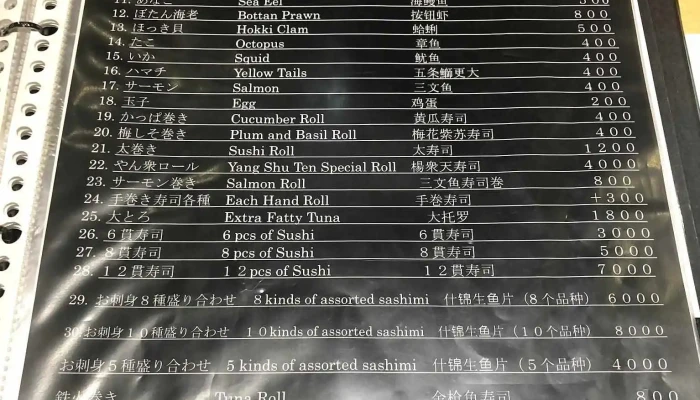 11. あなご Sea Eel 海鳗鱼 500
12. ぼたん海老 Bottan Prawn 按钮虾 800
13. ほっき貝 Hokki Clam 蛤蜊 500
14. たこ Octopus 章鱼 400
15. いか Squid 鱿鱼 400
16. ハマチ Yellow Tails 五条鰤更大 400
17. サーモン Salmon 三文鱼 400
18. 玉子 Egg 鸡蛋 200
19. かっぱ巻き Cucumber Roll 黄瓜寿司 400
20. 梅しそ巻き Plum and Basil Roll 梅花紫苏寿司 400
21. 太巻き Sushi Roll 太寿司 1200
22. やん衆ロール Yang Shu Ten Special Roll 楊衆天寿司 4000
23. サーモン巻き Salmon Roll 三文鱼寿司卷 800
24. 手巻き寿司各種 Each Hand Roll 手卷寿司 +300
25. 大とろ Extra Fatty Tuna 大托罗 1800
26. 6貫寿司 6 pcs of Sushi 6貫寿司 3000
27. 8貫寿司 8 pcs of Sushi 8貫寿司 5000
28. 12貫寿司 12pcs of Sushi 12貫寿司 7000
29. お刺身8種盛り合わせ 8 kinds of assorted sashimi 什锦生鱼片（8个品种） 6000
30. お刺身10種盛り合わせ 10kinds of assorted sashimi 什锦生鱼片（10个品种） 8000
お刺身5種盛り合わせ 5 kinds of assorted sashimi 什锦生鱼片（5个品种） 4000
鉄火巻き Tuna Roll 金枪鱼寿司 800